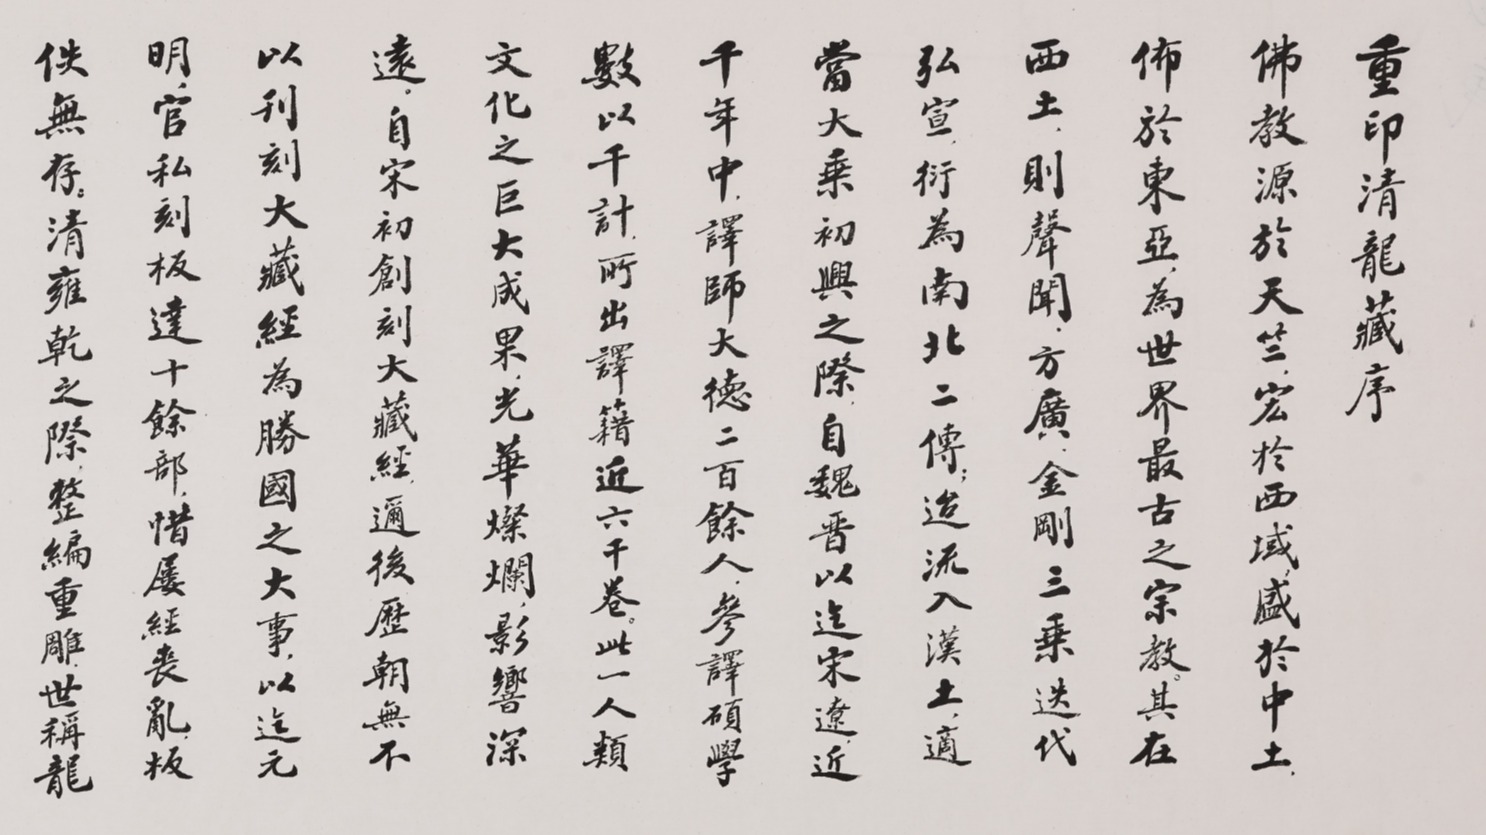 重印清龍藏序
佛教源於天竺,宏於西域,盛於中土,
佈於東亞,為世界最古之宗教。其在
西土,則聲聞,方廣,金剛三乗迭代
弘宣,衍為南北二傳;迨流入漢土,適
當大乗初興之際,自魏晋以迄宋遼,近
千年中,譯師大德二百餘人,參譯碩學
數以千計,所出譯籍近六千卷。此一人類
文化之巨大成果,光華燦爛,影響深
遠,自宋初創刻大藏經,邇後歷朝無不
以刊刻大藏經為勝國之大事,以迄元
明,官私刻板達十餘部,惜屢經丧亂,板
佚無存。清雍乾之際,整編重雕,世稱龍